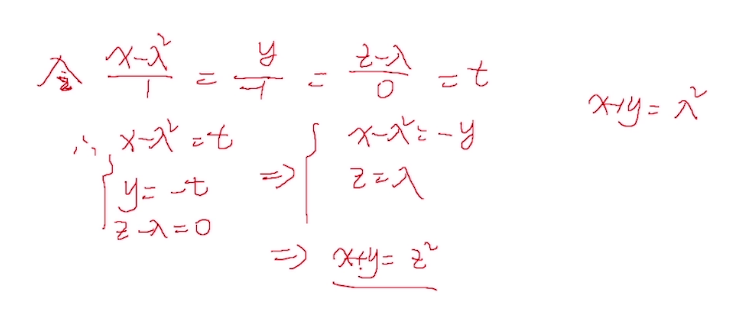 令 (x-λ²)/1 = y/-1 = (z-λ)/0 = t
x+y = λ²
∴ { x-λ² = t
y = -t
z-λ = 0
⇒ { x-λ² = -y
z = λ
⇒ x+y = z²